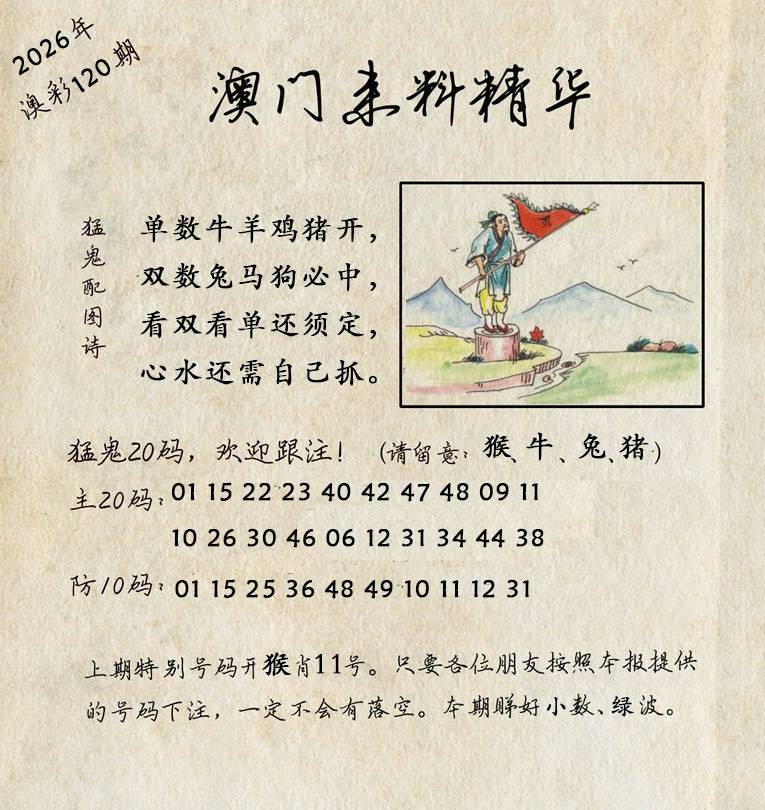 2026年
澳彩120期
澳门来料精华
猛鬼配图诗
单数牛羊鸡猪开，
双数兔马狗必中，
看双看单还须定，
心水还需自己抓。
猛鬼20码，欢迎跟注！（请留意：猴、牛、兔、猪）
主20码：01 15 22 23 40 42 47 48 09 11
10 26 30 46 06 12 31 34 44 38
防10码：01 15 25 36 48 49 10 11 12 31
上期特别号码开猴肖11号。只要各位朋友按照本报提供
的号码下注，一定不会有落空。本期睇好小数、绿波。